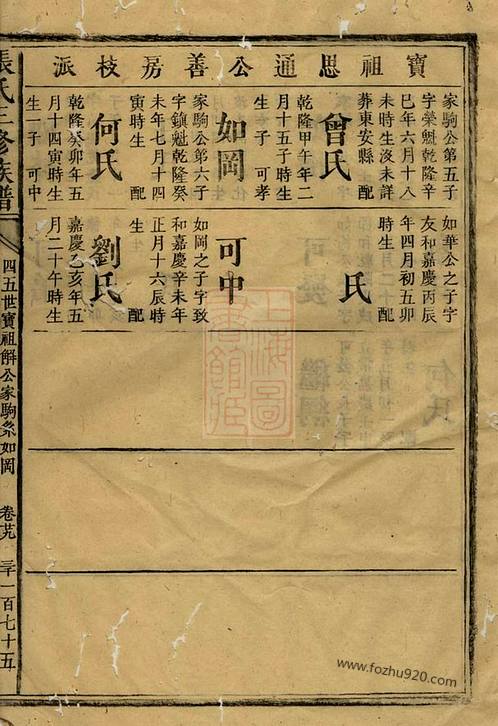 寶祖思通公善房枝派
家駒公第五子
字榮魁乾隆辛
巳年六月十八
未時生沒未詳
葬東安縣 配
曾氏
乾隆甲午年二
月十五子時生
生子 可孝
如岡
家駒公第六子
字鎮魁乾隆癸
未年七月十四
寅時生 配
何氏
乾隆癸卯年五
月十四寅時生
生一子 可中
如華公之子字
友和嘉慶丙辰
年四月初五卯
時生 配
氏
可中
如岡之子字致
和嘉慶辛未年
正月十六辰時
生 配
劉氏
嘉慶乙亥年五
月二十午時生
張氏三修族譜
四五世寶祖斛公家駒系如岡
卷共
一百七十五
上海圖書館
www.fozhu920.com